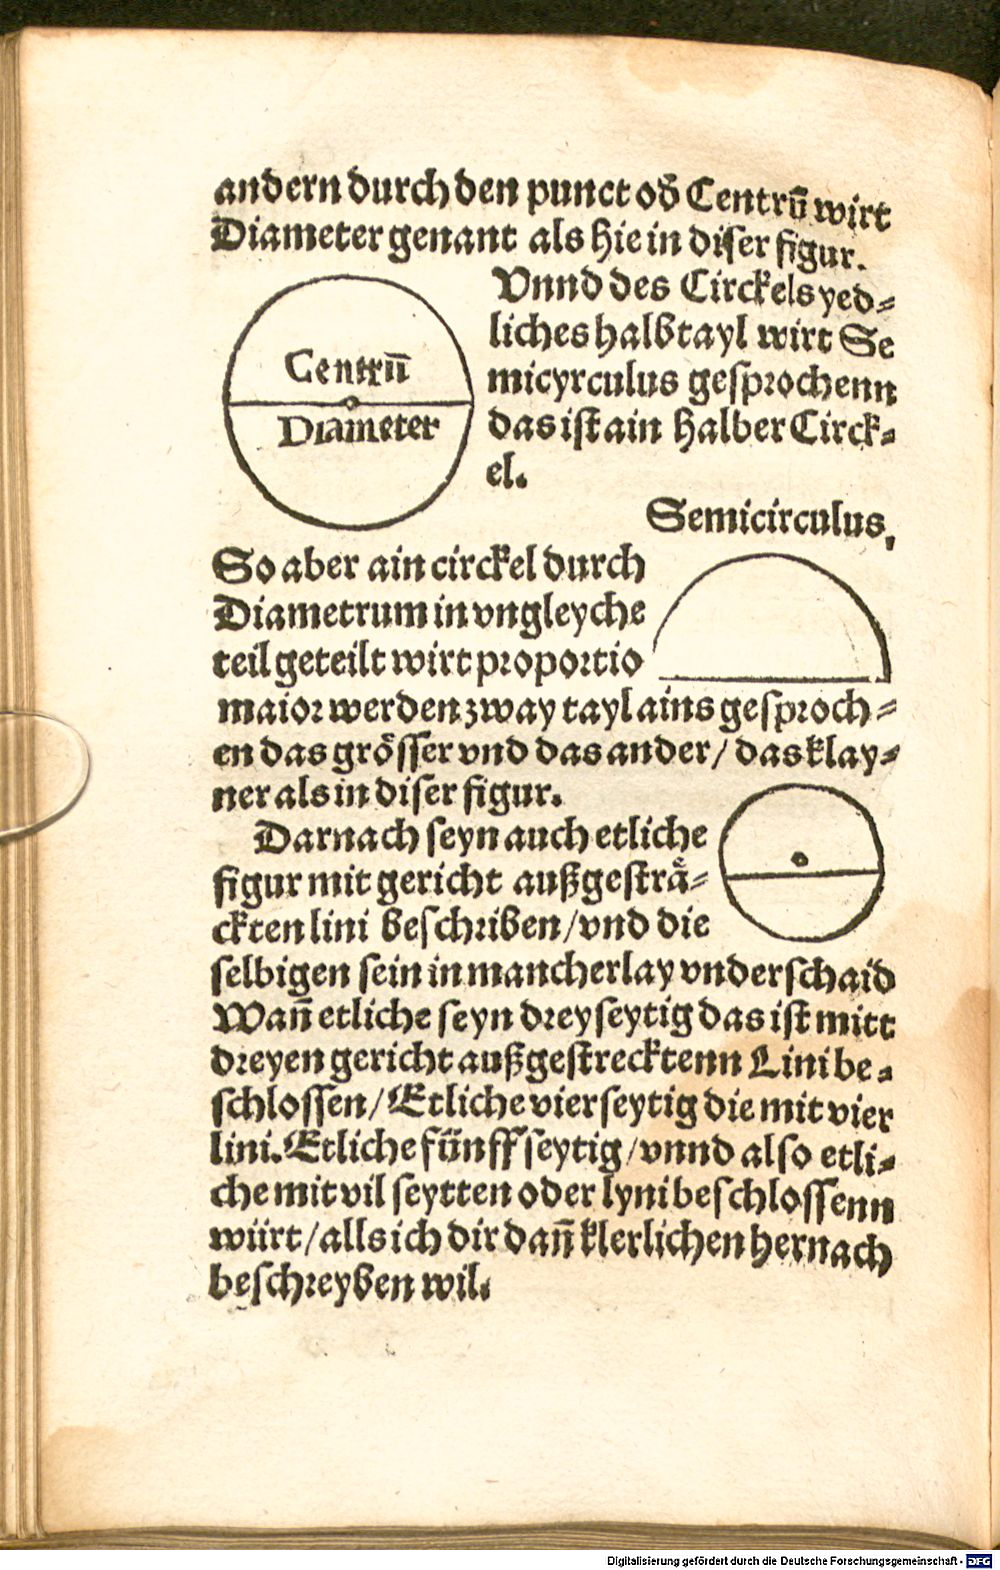 andern durch den punct od̄ Centrū wirt
Diameter genant als hie in diser figur.
Centrū
Diameter
Vnnd des Circkels yed⸗
liches halbtayl wirt Se
micyrculus gesprochenn
das ist ain halber Circk⸗
el.
Semicirculus,
So aber ain circkel durch
Diametrum in vngleyche
teil geteilt wirt proportio
maior werden zway tayl ains gesproch⸗
en das grösser vnd das ander/ das klay⸗
ner als in diser figur.
Darnach seyn auch etliche
figur mit gericht außgesträ⸗
ckten lini beschriben/vnd die
selbigen sein in mancherlay vnderschaid
Wañ etliche seyn dreyseytig das ist mitt
dreyen gericht außgestrecktenn Lini be⸗
schlossen/Etliche vierseytig die mit vier
lini.Etliche fünffseytig/vnnd also etli⸗
che mit vil seytten oder lyni beschlossenn
würt/alls ich dir dañ klerlichen hernach
beschreyben wil.
Digitalisierung gefördert durch die Deutsche Forschungsgemeinschaft - DFG